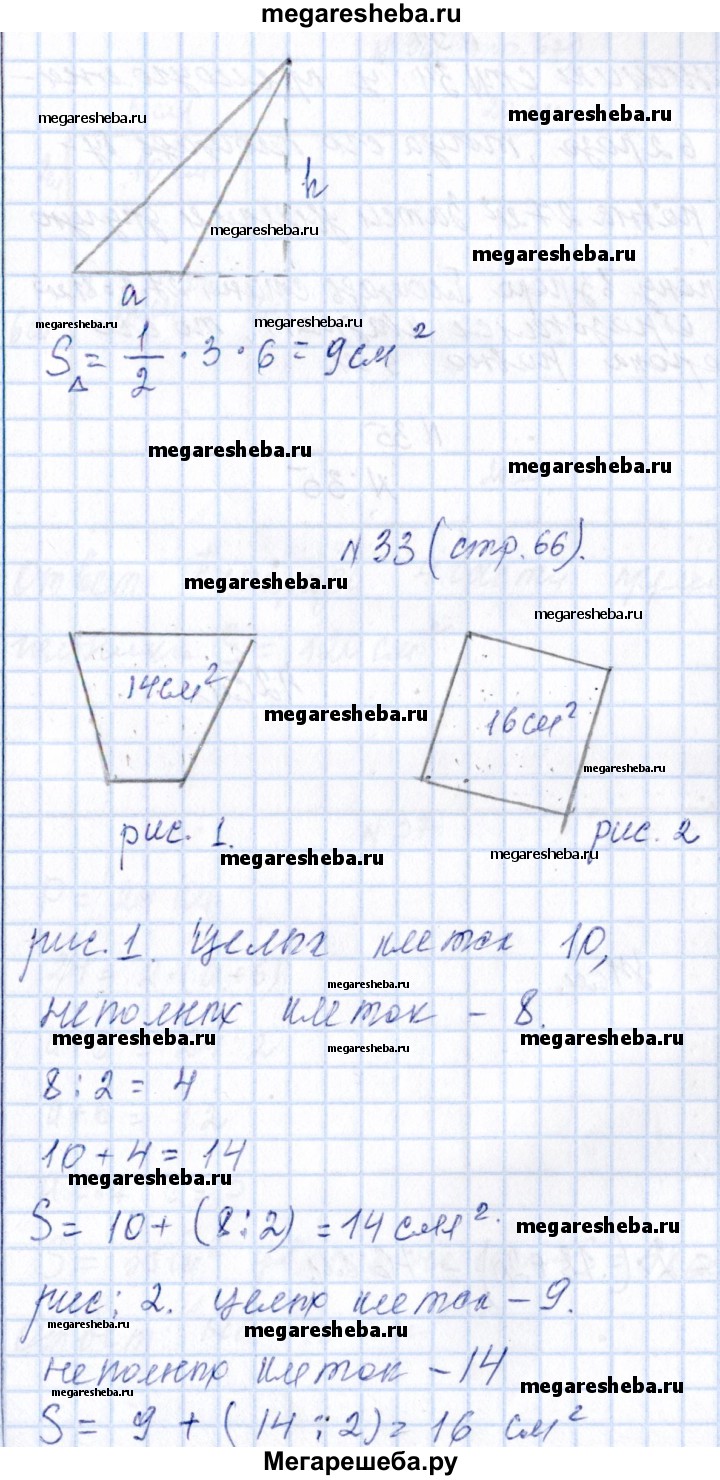 megaresheba.ru
megaresheba.ru
megaresheba.ru
h
megaresheba.ru
megaresheba.ru
a
megaresheba.ru
megaresheba.ru
S△ = 1/2 · 3 · 6 = 9 см²
megaresheba.ru
megaresheba.ru
N 33 (стр. 66).
megaresheba.ru
megaresheba.ru
14 см²
16 см²
megaresheba.ru
megaresheba.ru
рис. 1.
рис. 2
megaresheba.ru
megaresheba.ru
рис. 1. Целых клеток 10,
megaresheba.ru
неполных клеток – 8.
megaresheba.ru
megaresheba.ru
megaresheba.ru
8 : 2 = 4
10 + 4 = 14
megaresheba.ru
megaresheba.ru
S = 10 + (8 : 2) = 14 см².
megaresheba.ru
рис; 2. целых клеток – 9.
megaresheba.ru
megaresheba.ru
неполных клеток – 14
megaresheba.ru
megaresheba.ru
S = 9 + (14 : 2) = 16 см²
Мегарешеба.ру